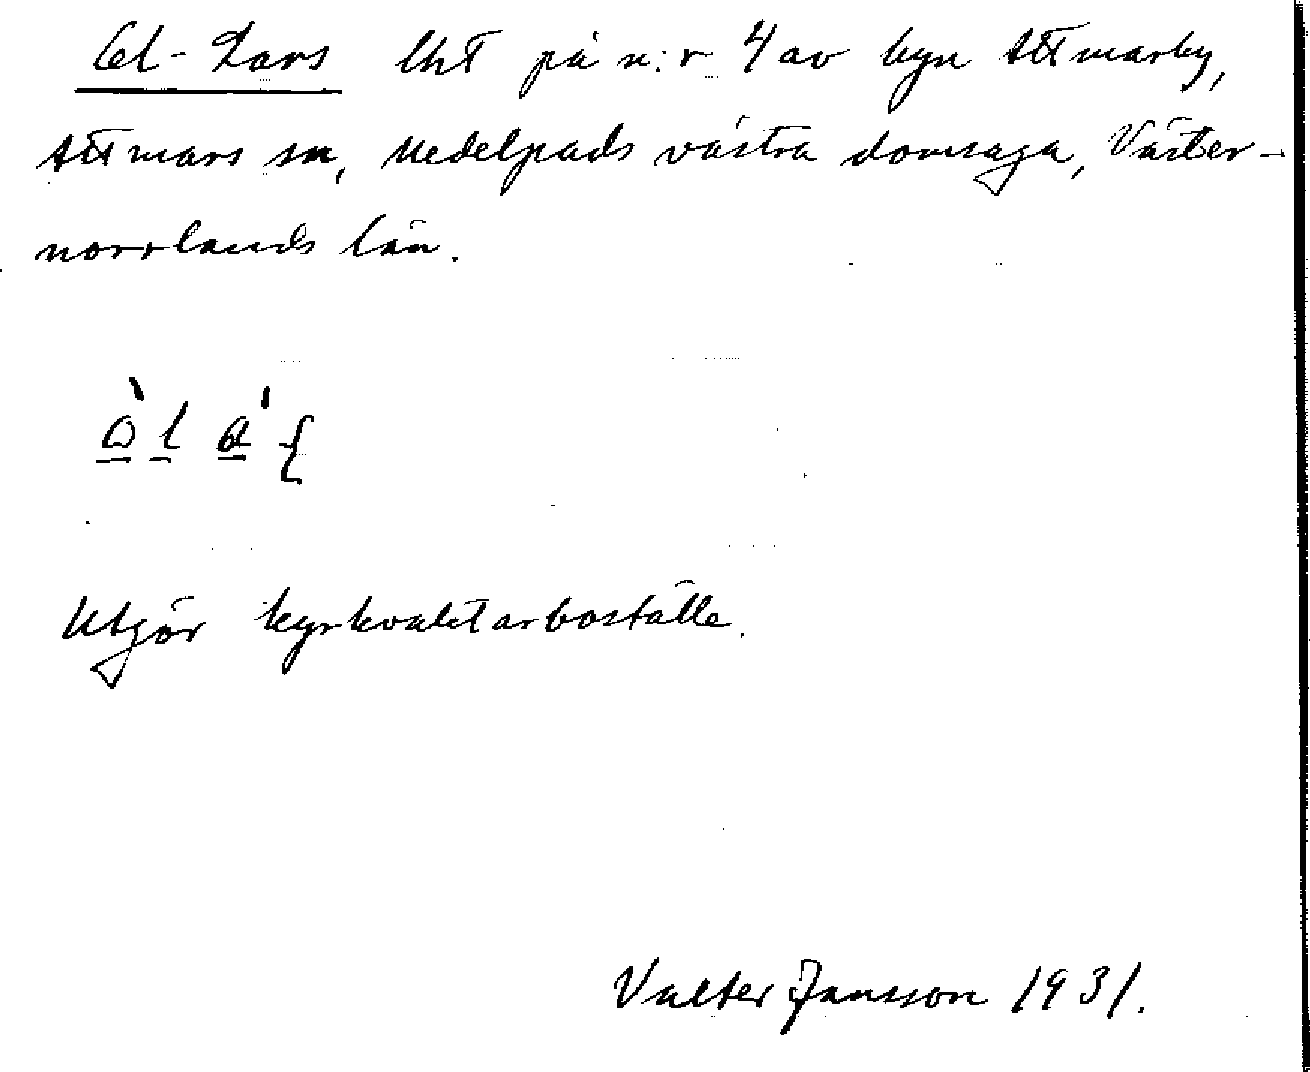 Ol-Lars Uht på n:r 4 av byn Attmarby,
Attmars sn, Medelpads västra domsaga, Väster-
norrlands län.
Utgör kyrkvaktarboställe.
Valter Jansson 1931.